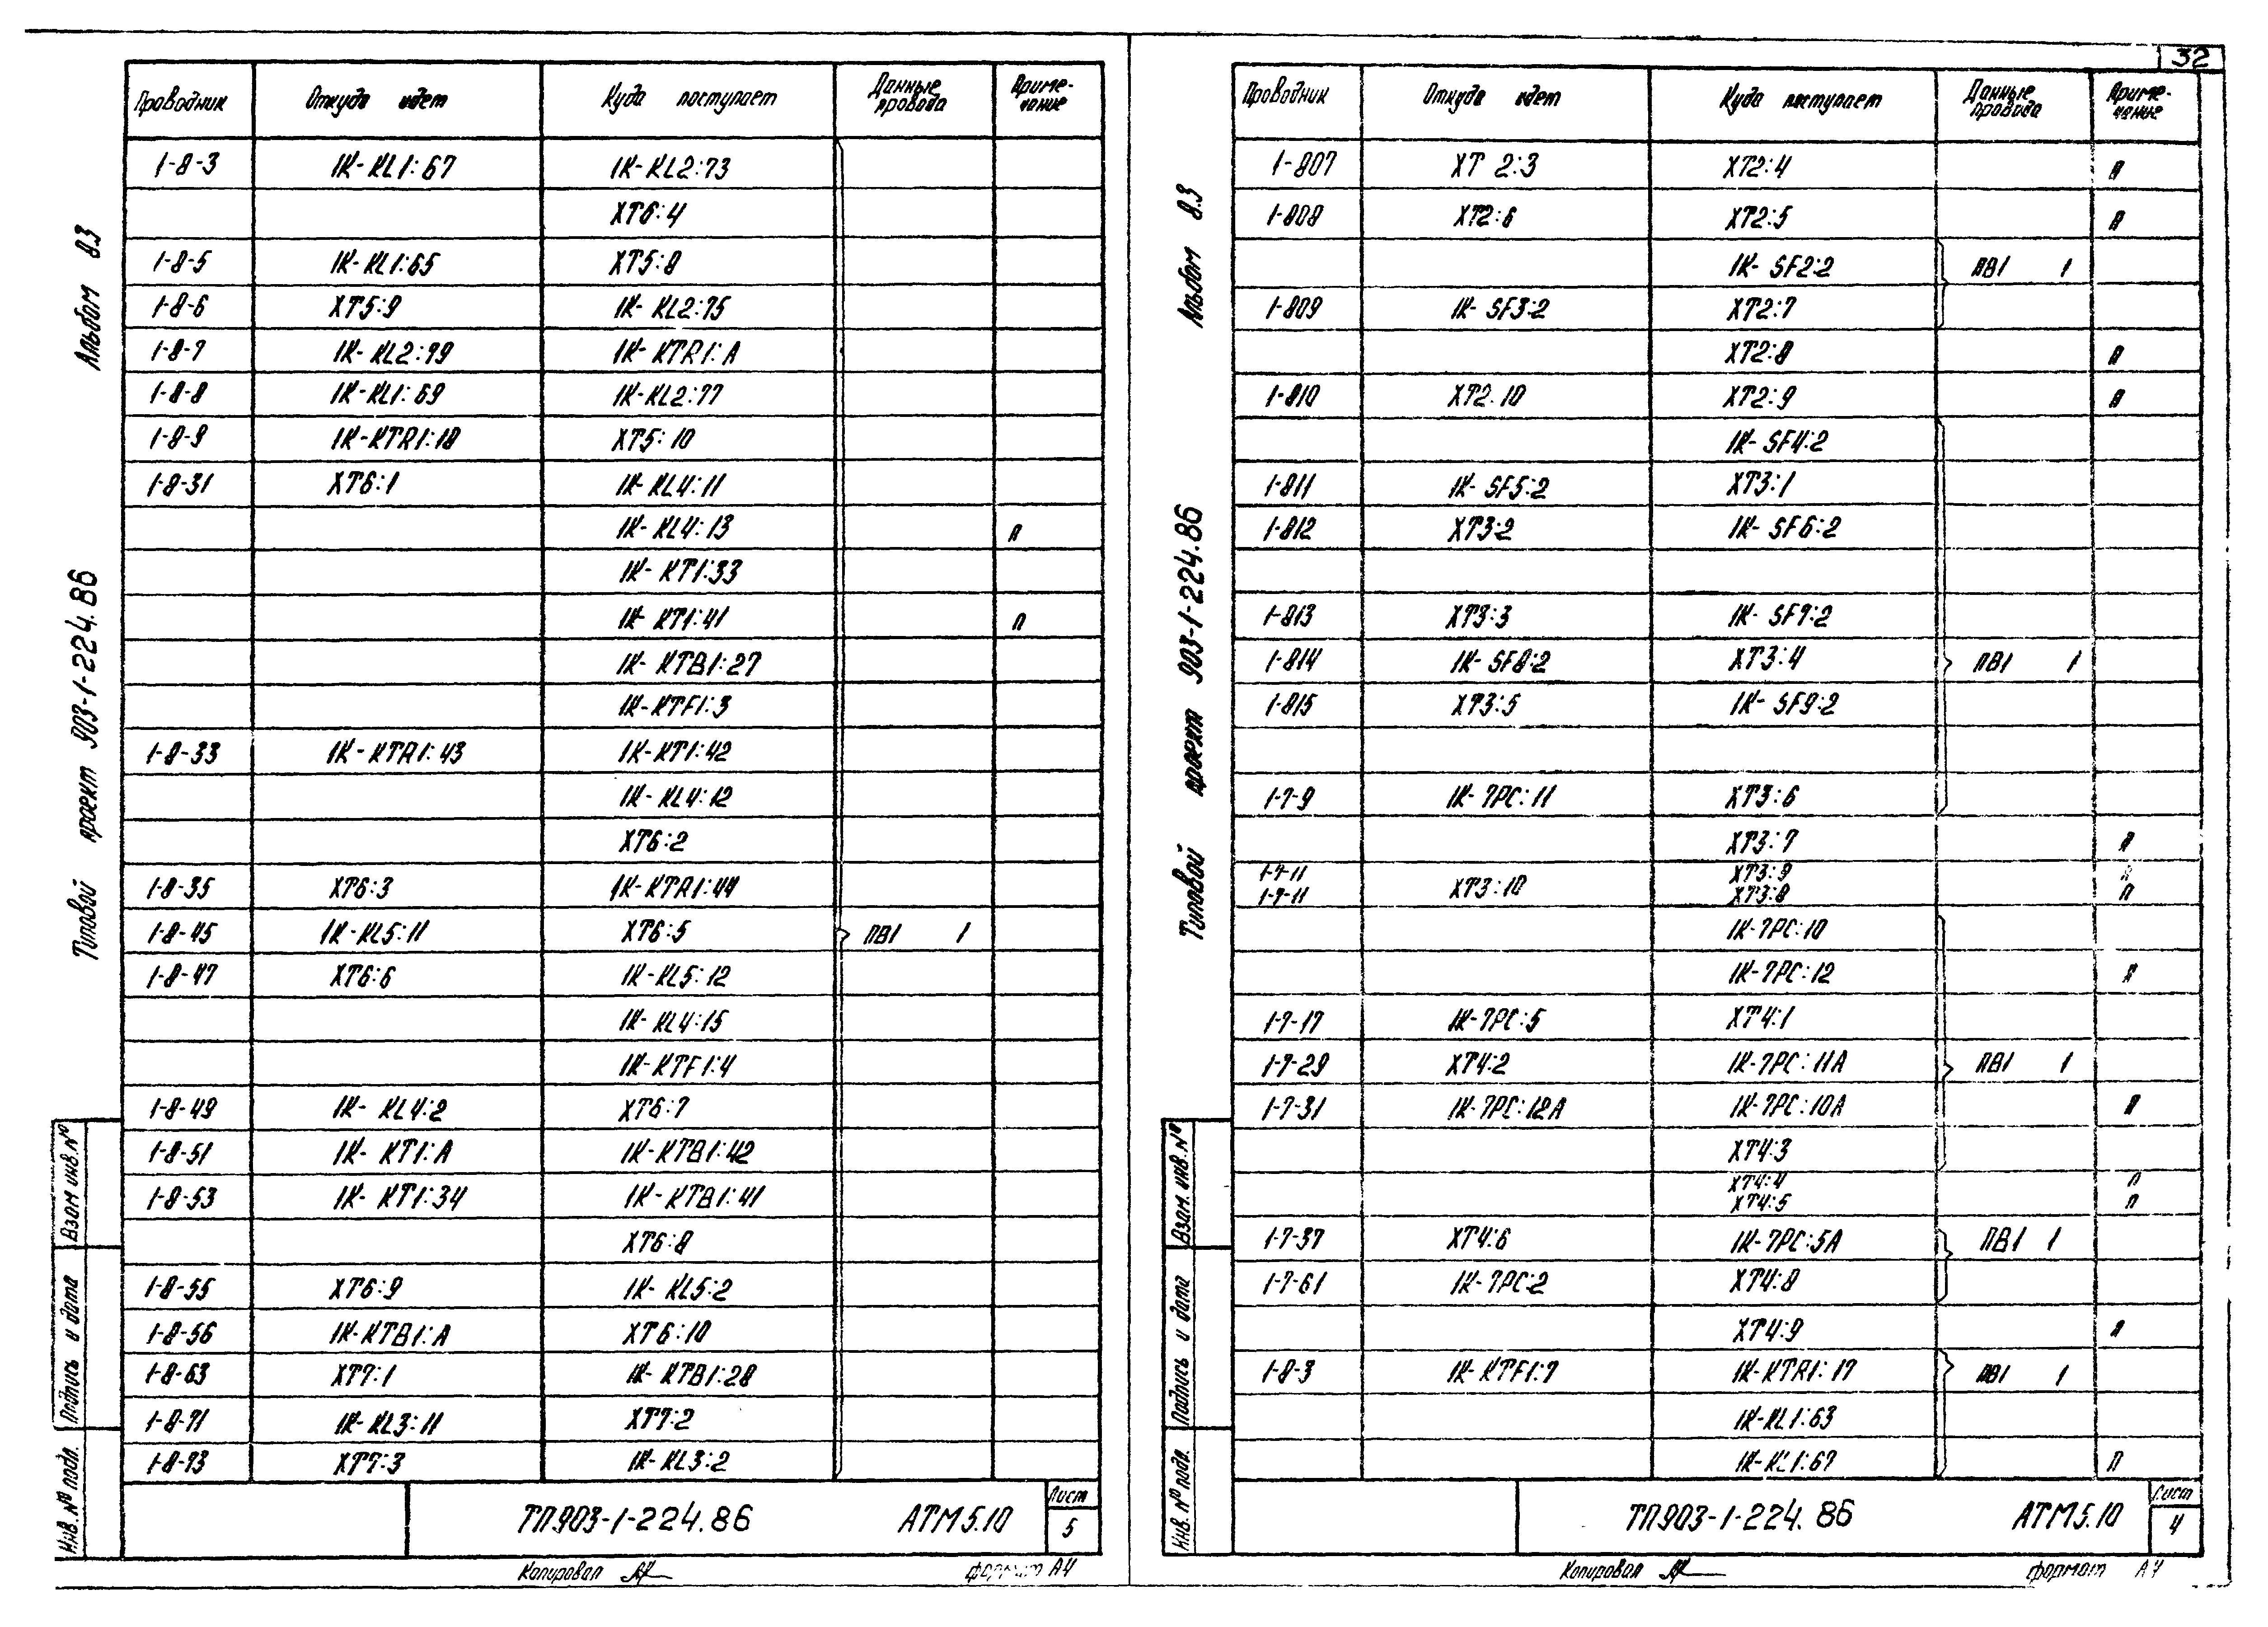 32
Альбом 8.3
Типовой проект 903-1-224.86
Проводник Откуда идет Куда поступает Данные провода Приме-чание
1-8-3 1К-KL1:67 1К-KL2:73
ХТ6:4
1-8-5 1К-KL1:65 ХТ5:8
1-8-6 ХТ5:9 1К-KL2:75
1-8-7 1К-KL2:79 1К-КТR1:А
1-8-8 1К-KL1:69 1К-KL2:77
1-8-9 1К-КТR1:18 ХТ5:10
1-8-31 ХТ6:1 1К-KL4:11
1К-KL4:13 п
1К-КТ1:33
1К-КТ1:41 п
1К-КТВ1:27
1К-КТF1:3
1-8-33 1К-КТR1:43 1К-КТ1:42
1К-KL4:12
ХТ6:2
1-8-35 ХТ6:3 1К-КТR1:44
1-8-45 1К-KL5:11 ХТ6:5 ПВ1 1
1-8-47 ХТ6:6 1К-KL5:12
1К-KL4:15
1К-КТF1:4
1-8-49 1К-KL4:2 ХТ6:7
1-8-51 1К-КТ1:А 1К-КТВ1:42
1-8-53 1К-КТ1:34 1К-КТВ1:41
ХТ6:8
1-8-55 ХТ6:9 1К-KL5:2
1-8-56 1К-КТВ1:А ХТ6:10
1-8-63 ХТ7:1 1К-КТВ1:28
1-8-71 1К-KL3:11 ХТ7:2
1-8-73 ХТ7:3 1К-KL3:2
Взам инв.№
Подпись и дата
Инв.№ подл.
ТП903-1-224.86 АТМ5.10 Лист 5
Копировал формат А4
Альбом 8.3
Типовой проект 903-1-224.86
Проводник Откуда идет Куда поступает Данные провода Приме-чание
1-807 ХТ 2:3 ХТ2:4 п
1-808 ХТ2:6 ХТ2:5 п
1К-SF2:2 ПВ1 1
1-809 1К-SF3:2 ХТ2:7
ХТ2:8 п
1-810 ХТ2.10 ХТ2:9 п
1К-SF4:2
1-811 1К-SF5:2 ХТ3:1
1-812 ХТ3:2 1К-SF6:2
1-813 ХТ3:3 1К-SF7:2
1-814 1К-SF8:2 ХТ3:4 ПВ1 1
1-815 ХТ3:5 1К-SF9:2
1-7-9 1К-7РС:11 ХТ3:6
ХТ3:7 п
1-7-11 ХТ3:9 п
1-7-11 ХТ3:10 ХТ3:8 п
1К-7РС:10
1К-7РС:12 п
1-7-17 1К-7РС:5 ХТ4:1
1-7-29 ХТ4:2 1К-7РС:11А ПВ1 1
1-7-31 1К-7РС:12А 1К-7РС:10А п
ХТ4:3
ХТ4:4 п
ХТ4:5 п
1-7-37 ХТ4:6 1К-7РС:5А ПВ1 1
1-7-61 1К-7РС:2 ХТ4:8
ХТ4:9 п
1-8-3 1К-КТF1:7 1К-КТR1:17 ПВ1 1
1К-KL1:63
1К-KL1:67 п
Взам. инв.№
Подпись и дата
Инв.№ подл.
ТП903-1-224.86 АТМ5.10 Лист 4
Копировал формат А4